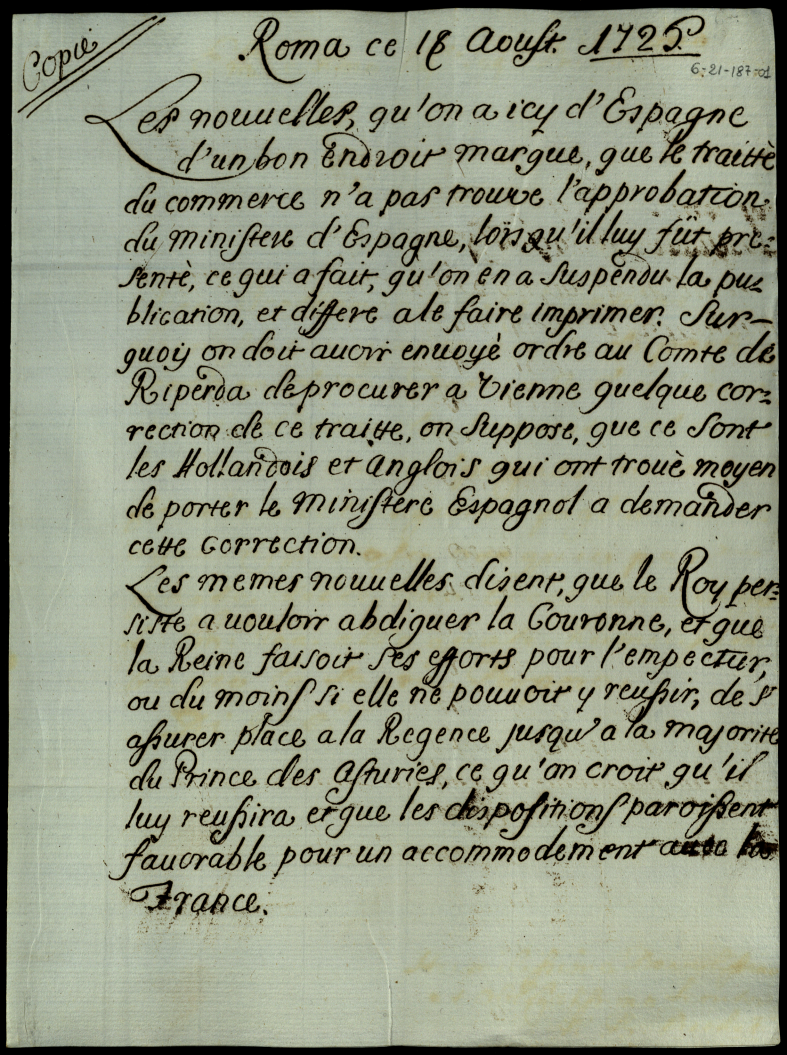 Copie
Roma ce 18 Aoust. 1725.
6-21-187-01
Les nouuelles, qu'on a icy d'Espagne
d'un bon Endroit marque, que le traitté
du commerce n'a pas trouve l'approbation
du ministere d'Espagne, lorsqu'il luy fût pre-
sentè, ce qui a fait, qu'on en a suspendu la pu-
blication, et differe a le faire imprimer. Sur-
quoy on doit auoir enuoyè ordre au Comte de
Riperda de procurer a Vienne quelque cor-
rection de ce traitte, on suppose, que ce sont
les Hollandois et Anglois qui ont trouè moyen
de porter le ministere Espagnol a demander
cette correction.
Les memes nouuelles disent, que le Roy per-
siste a uouloir abdiquer la Couronne, et que
la Reine faisoit ses efforts pour l'empectur,
ou du moins si elle ne pouuoit y reussir, de s'
assurer place a la Regence jusqu'a la majorite
du Prince des Asturies, ce qu'on croit qu'il
luy reussira et que les dispositions paroissent
fauorable pour un accommodement auec la
France.